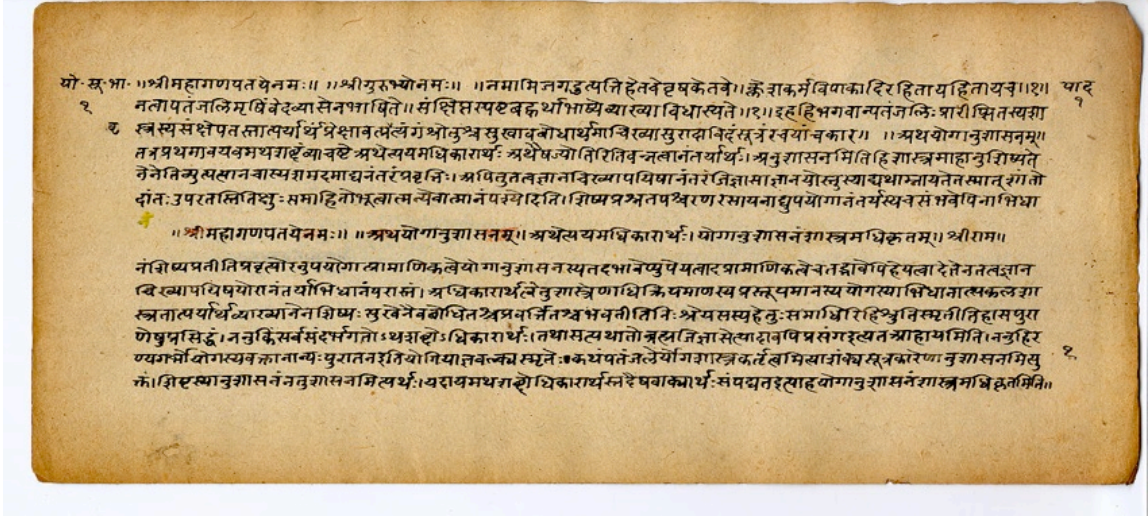 यो॰सू॰भा॰ ॥श्रीमहागणपतयेनमः॥ ॥श्रीगुरुभ्योनमः॥ ॥नमामिजगदुत्पत्तिहेतवेवृषकेतवे॥क्लेशकर्मविपाकादिरहितायहितायच॥१॥ पाद
१ नत्वापतंजलिमृषिंवेदव्यासेनभाषिते॥संक्षिप्तस्पष्टबह्वर्थाभाष्येव्याख्याविधास्यते॥१॥इहहिभगवान्पतंजलिःप्रारीप्सितस्यशा १
स्त्रस्यसंक्षेपतस्तात्पर्यार्थंप्रेक्षावत्प्रवृत्त्यंगंश्रोतुश्चसुखावबोधार्थमाचिख्यासुरादाविदंसूत्रंरचयांचकार॥ ॥अथयोगानुशासनम्॥
तत्रप्रथमावयवमथशब्दंव्याचष्टेअथेत्ययमधिकारार्थः अथैषज्योतिरितिवन्नत्वानंतर्यार्थः।अनुशासनमितिहिशास्त्रमाहानुशिष्यते
नेनेतिव्युत्पत्त्यानचास्यशमदमाद्यनंतरंप्रवृत्तिः।अपितुतत्वज्ञानचिख्यापयिषानंतरंजिज्ञासाज्ञानयोस्तुस्याद्यथाम्नायतेतस्मात् शांतो
दांतःउपरतस्तितिक्षुःसमाहितोभूत्वात्मन्येवात्मानंपश्येदिति।शिष्यप्रश्नतपश्चरणरसायनाद्युपयोगानंतर्यस्यचसंभवेपिनाभिधा
॥श्रीमहागणपतयेनमः॥ ॥अथयोगानुशासनम्॥अथेत्ययमधिकारार्थः।योगानुशासनंशास्त्रमधिकृतम्॥श्रीराम॥
नंशिष्यप्रतीतिप्रवृत्त्योरनुपयोगात्प्रामाणिकत्वेयोगानुशासनस्यतदभावेप्युपेयत्वादप्रामाणिकत्वेचतद्भावेपिहेयत्वादेतेनतत्वज्ञान
चिख्यापयिषयोरानंतर्याभिधानंपरास्तं।अधिकारार्थत्वेतुशास्त्रेणाधिक्रियमाणस्यप्रस्तूयमानस्ययोगस्याभिधानात्सकलशा
स्त्रतात्पर्यार्थव्याख्यानेनशिष्यःसुखेनैवबोधितश्चप्रवर्तितश्चभवतीति।निःश्रेयसस्यहेतुःसमाधिरितिहिश्रुतिस्मृतीतिहासपुरा
णेषुप्रसिद्धं।ननुकिंसर्वसंदर्भगतोऽथशब्दोऽधिकारार्थः।तथासत्यथातोब्रह्मजिज्ञासेत्यादावपिप्रसंगइत्यतआहायमिति।ननुहिर
ण्यगर्भोयोगस्यवक्तानान्यःपुरातनइतियोगियाज्ञवल्क्यस्मृतेःकथंपतंजलेर्योगशास्त्रकर्तृत्वमित्याशंक्यसूत्रकारेणानुशासनमित्यु १
क्तं।शिष्टस्यानुशासनंनतुशासनमित्यर्थः।यदायमथशब्दोधिकारार्थस्तदैषवाक्यार्थःसंपद्यतइत्याहयोगानुशासनंशास्त्रमधिकृतमिति॥